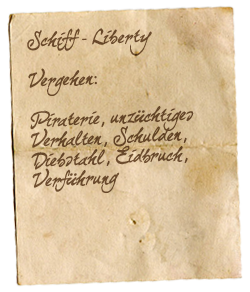 Schiff - Liberty
Vergehen:
Piraterie, unzüchtiges
Verhalten, Schulden,
Diebstahl, Eidbruch,
Verführung